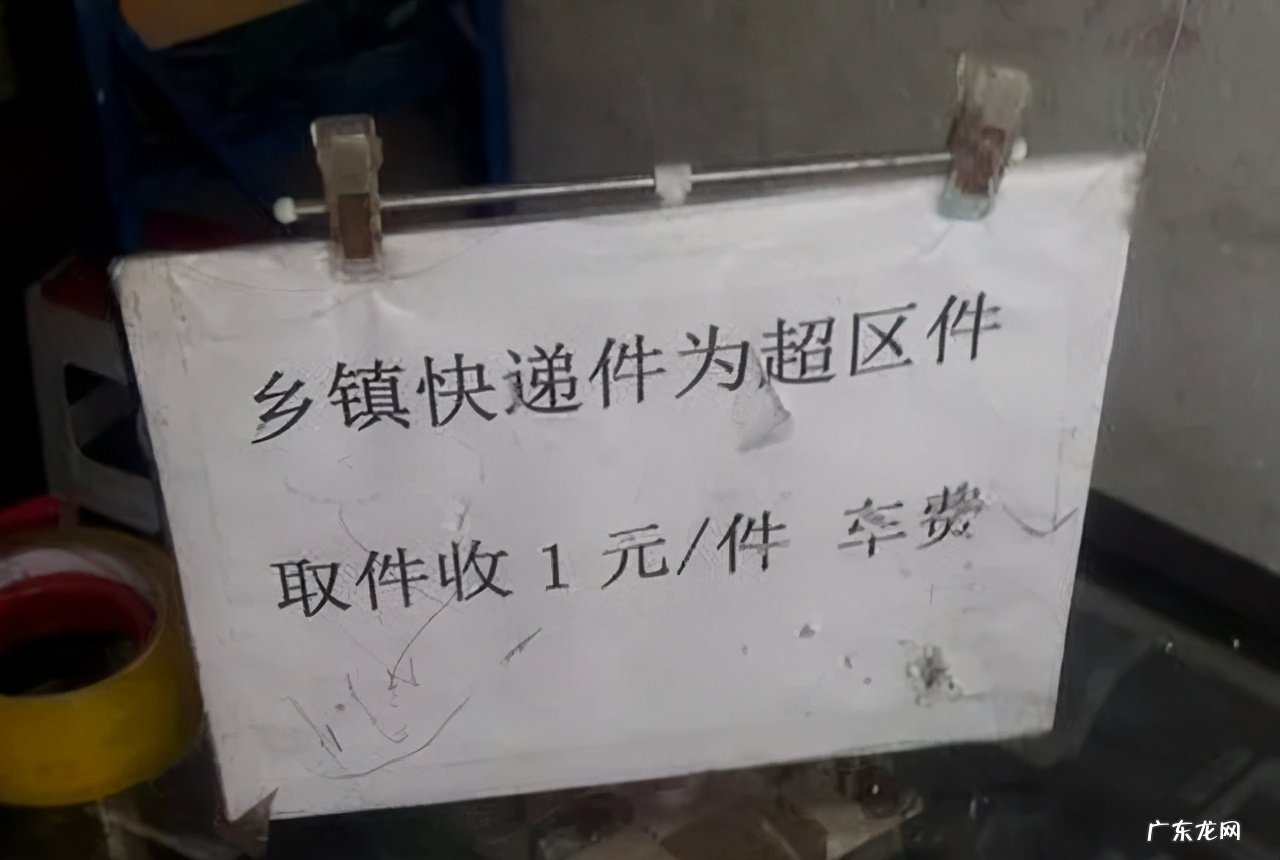 乡镇快递件为超区件
取件收1元/件 车费
广东龙网